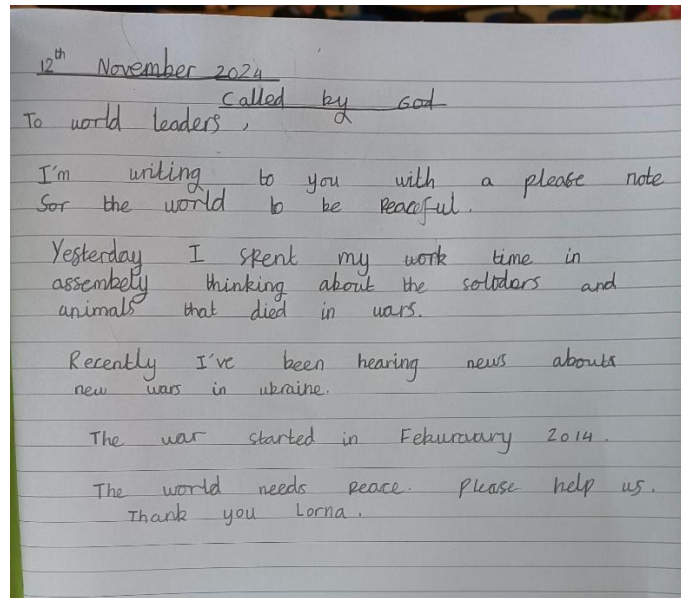 12th November 2024
Called by God
To world leaders,
I'm writing to you with a please note
for the world to be Peaceful.
Yesterday I spent my work time in
assembely thinking about the soliders and
animals that died in wars.
Recently I've been hearing news abouts
new wars in ukraine.
The war started in Feburuary 2014.
The world needs peace. Please help us.
Thank you Lorna.